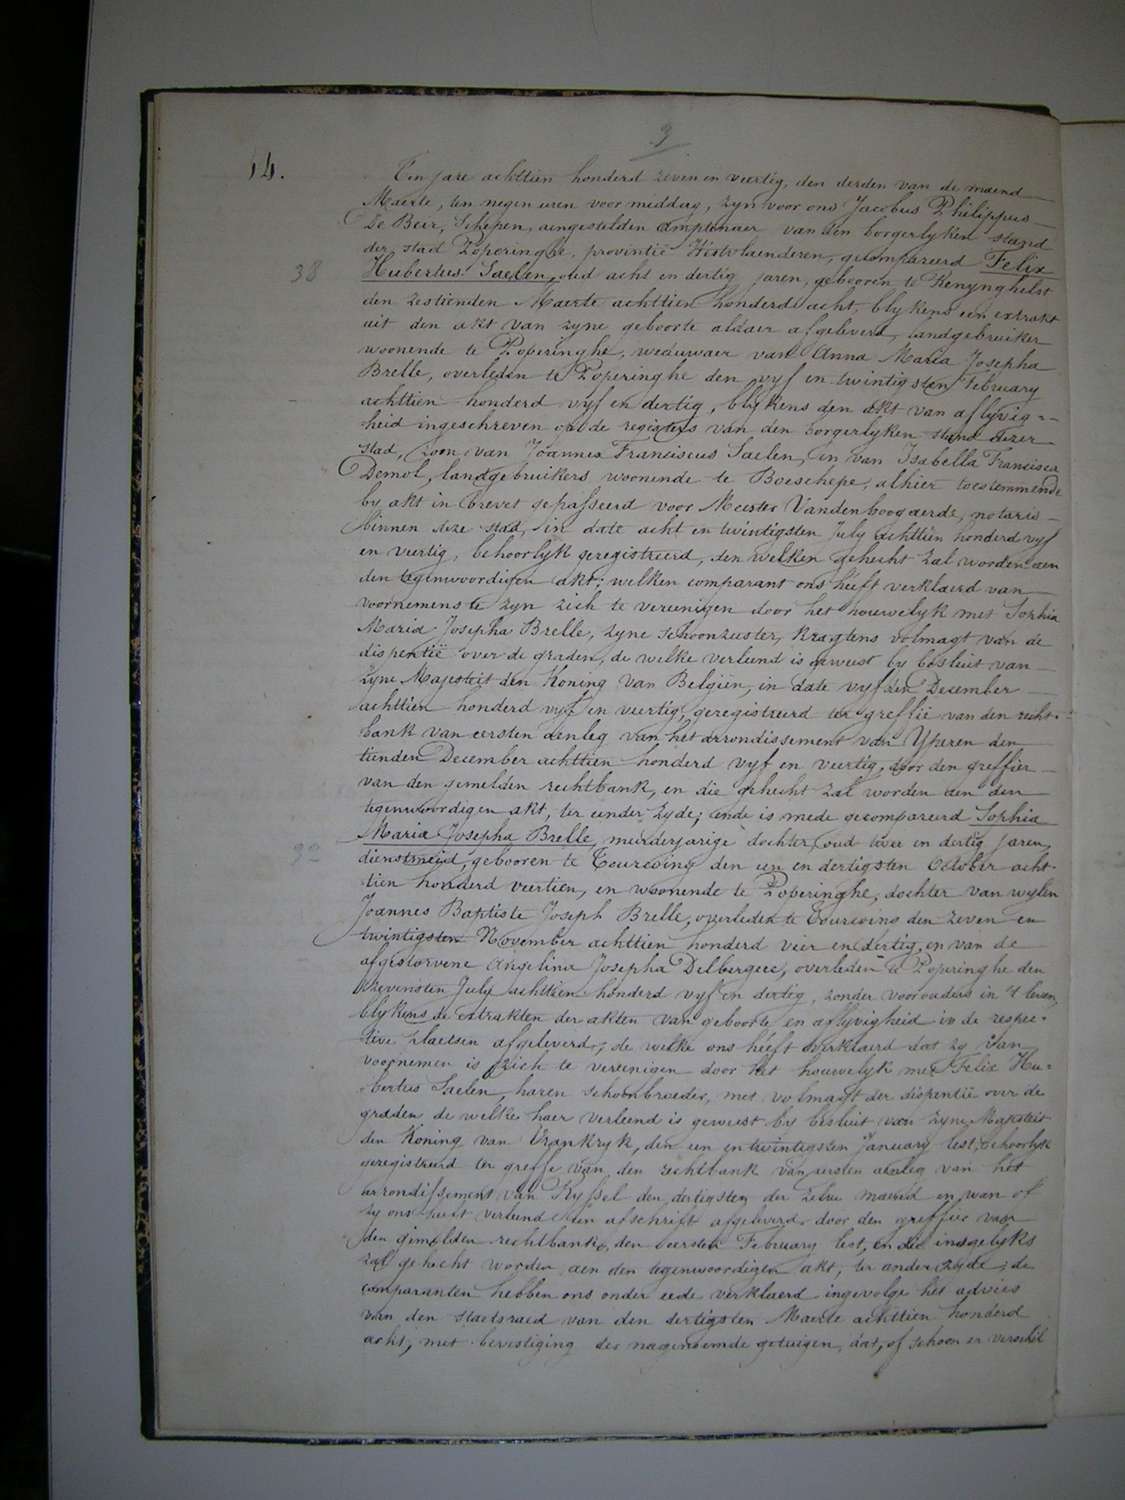 9
14.
Ten jare achttien honderd zeven en veertig, den derden van de maend
Maerte, ten negen uren voormiddag, zyn voor ons Jacobus Philippus
De Beir, Schepen, aengestelden amptenaer van den borgerlyken stand
der stad Poperinghe, provintie Westvlaenderen, gecompareerd Felix
38
Hubertus Saelen, oud acht en dertig jaren, gebooren te Renynghelst
den zestienden Maerte achttien honderd acht, blykens een extrakt
uit den akt van zyne geboorte aldaer afgeleverd, landgebruiker
woonende te Poperinghe, weduwaer van Anna Maria Josepha
Brelle, overleden te Poperinghe den vyf en twintigsten February
achttien honderd vyf en dertig, blykens den akt van aflyvig=
heid ingeschreven op de registers van den borgerlyken stand dezer
stad, zoon van Joannes Franciscus Saelen, en van Isabella Francisca
Demol, landgebruikers woonende te Boeschepe, alhier toestemmende
by akt in brevet gepasseerd voor Meester Vandenboogaerde, notaris
binnen deze stad, in date acht en twintigsten July achttien honderd vyf
en veertig, behoorlyk geregistreerd, den welken gehecht zal worden aen
den tegenwoordigen akt; welken comparant ons heeft verklaerd van
voornemens te zyn zich te vereenigen door het houwelyk met Sophia
Maria Josepha Brelle, zyne schoonzuster, kragtens volmagt van de
dispentië over de graden, de welke verleend is geweest by besluit van
zyne Majesteit den Koning van Belgiën, in date vyfden December
achttien honderd vyf en veertig, geregistreerd ter greffie van den recht=
bank van eersten aenleg van het arrondissement van Yperen den
tienden December achttien honderd vyf en veertig, door den greffier
van den gemelden rechtbank, en die gehecht zal worden aen den
tegenwoordigen akt, ter eender zyde; ende is mede gecompareerd Sophia
32
Maria Josepha Brelle, meerderjarige dochter, oud twee en dertig jaren,
dienstmeid, gebooren te Tourcoing den een en dertigsten October acht=
tien honderd veertien, en woonende te Poperinghe, dochter van wylen
Joannes Baptiste Joseph Brelle, overleden te Tourcoing den zeven en
twintigsten November achttien honderd vier en dertig, en van de
afgestorvene Angelina Josepha Delbergue, overleden te Poperinghe den
zevensten July achttien honderd vyf en dertig, zonder voorouders in 't leven,
blykens de extrakten der akten van geboorte en aflyvigheid in de respec=
tive plaetsen afgeleverd; de welke ons heeft verklaerd dat zy van
voornemen is zich te vereenigen door het houwelyk met Felix Hu=
bertus Saelen, haren schoonbroeder, met volmagt der dispentie over de
graden de welke haer verleend is geweest by besluit van zyne Majesteit
den Koning van Vrankryk, den een en twintigsten January lest, behoorlyk
geregistreerd ter greffe van den rechtbank van eersten aenleg van het
arrondissement van Ryssel den dertigsten der zelve maend en wan of
zy ons heeft verleend een afschrift afgeleverd door den greffier van
den gemelden rechtbank, den eersten February lest, en die insgelyks
zal gehecht worden aen den tegenwoordigen akt, ter ander zyde; de
comparanten hebben ons onder eede verklaerd ingevolge het advies
van den staetsraed van den dertigsten Maerte achttien honderd
acht, met bevestiging der nagenoemde getuigen, dat, of schoon er verschil